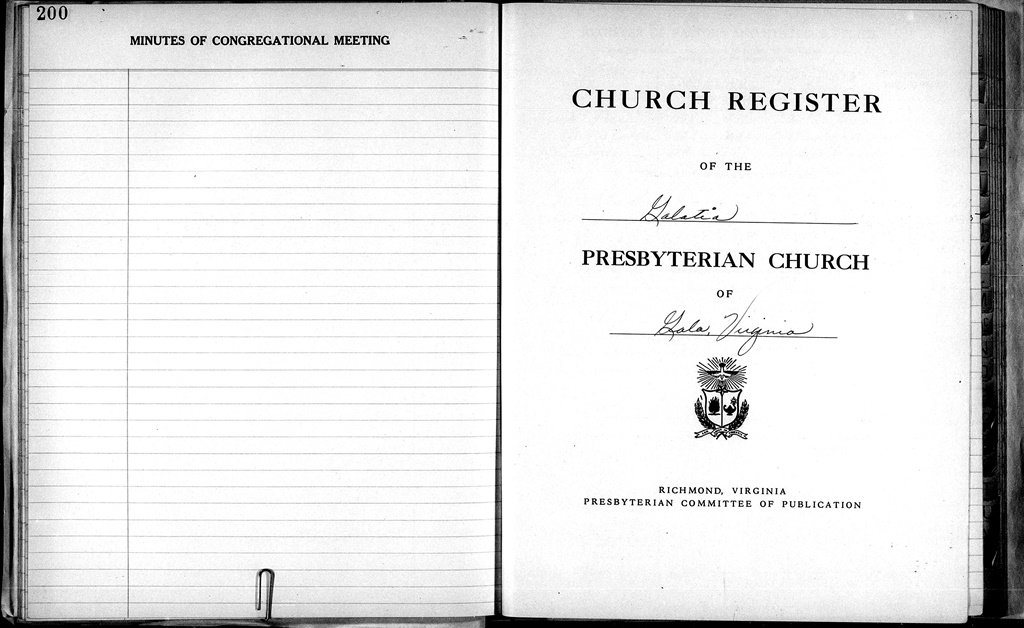 200
MINUTES OF CONGREGATIONAL MEETING
CHURCH REGISTER
OF THE
Galatia
PRESBYTERIAN CHURCH
OF
Gala, Virginia
RICHMOND, VIRGINIA
PRESBYTERIAN COMMITTEE OF PUBLICATION